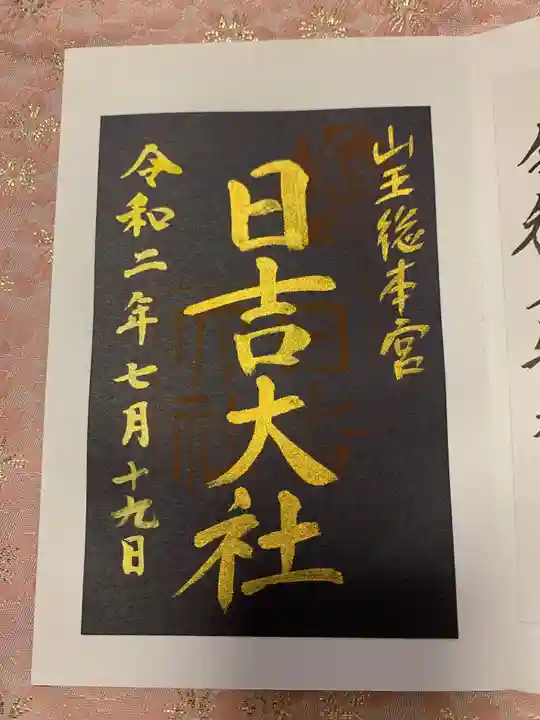 山王総本宮
日吉大社
令和二年七月十九日